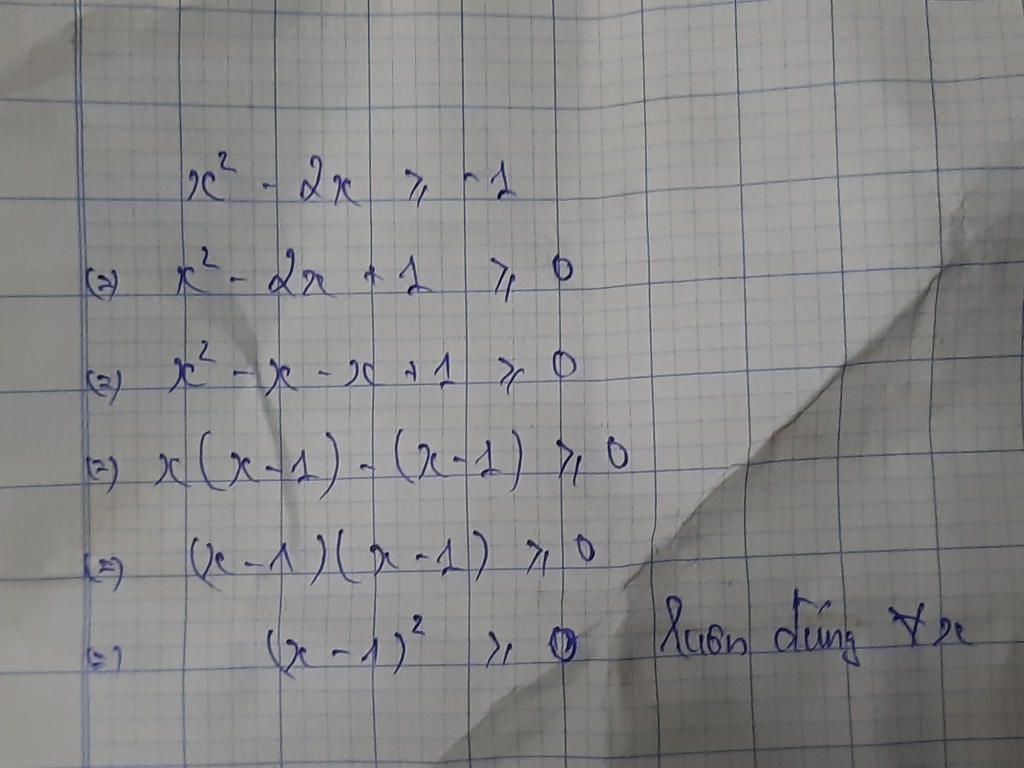 x² - 2x ≥ -1
(=) x² - 2x + 1 ≥ 0
(=) x² - x - x + 1 ≥ 0
(=) x(x-1) - (x-1) ≥ 0
(=) (x-1)(x-1) ≥ 0
(=) (x-1)² ≥ 0 luôn đúng ∀x